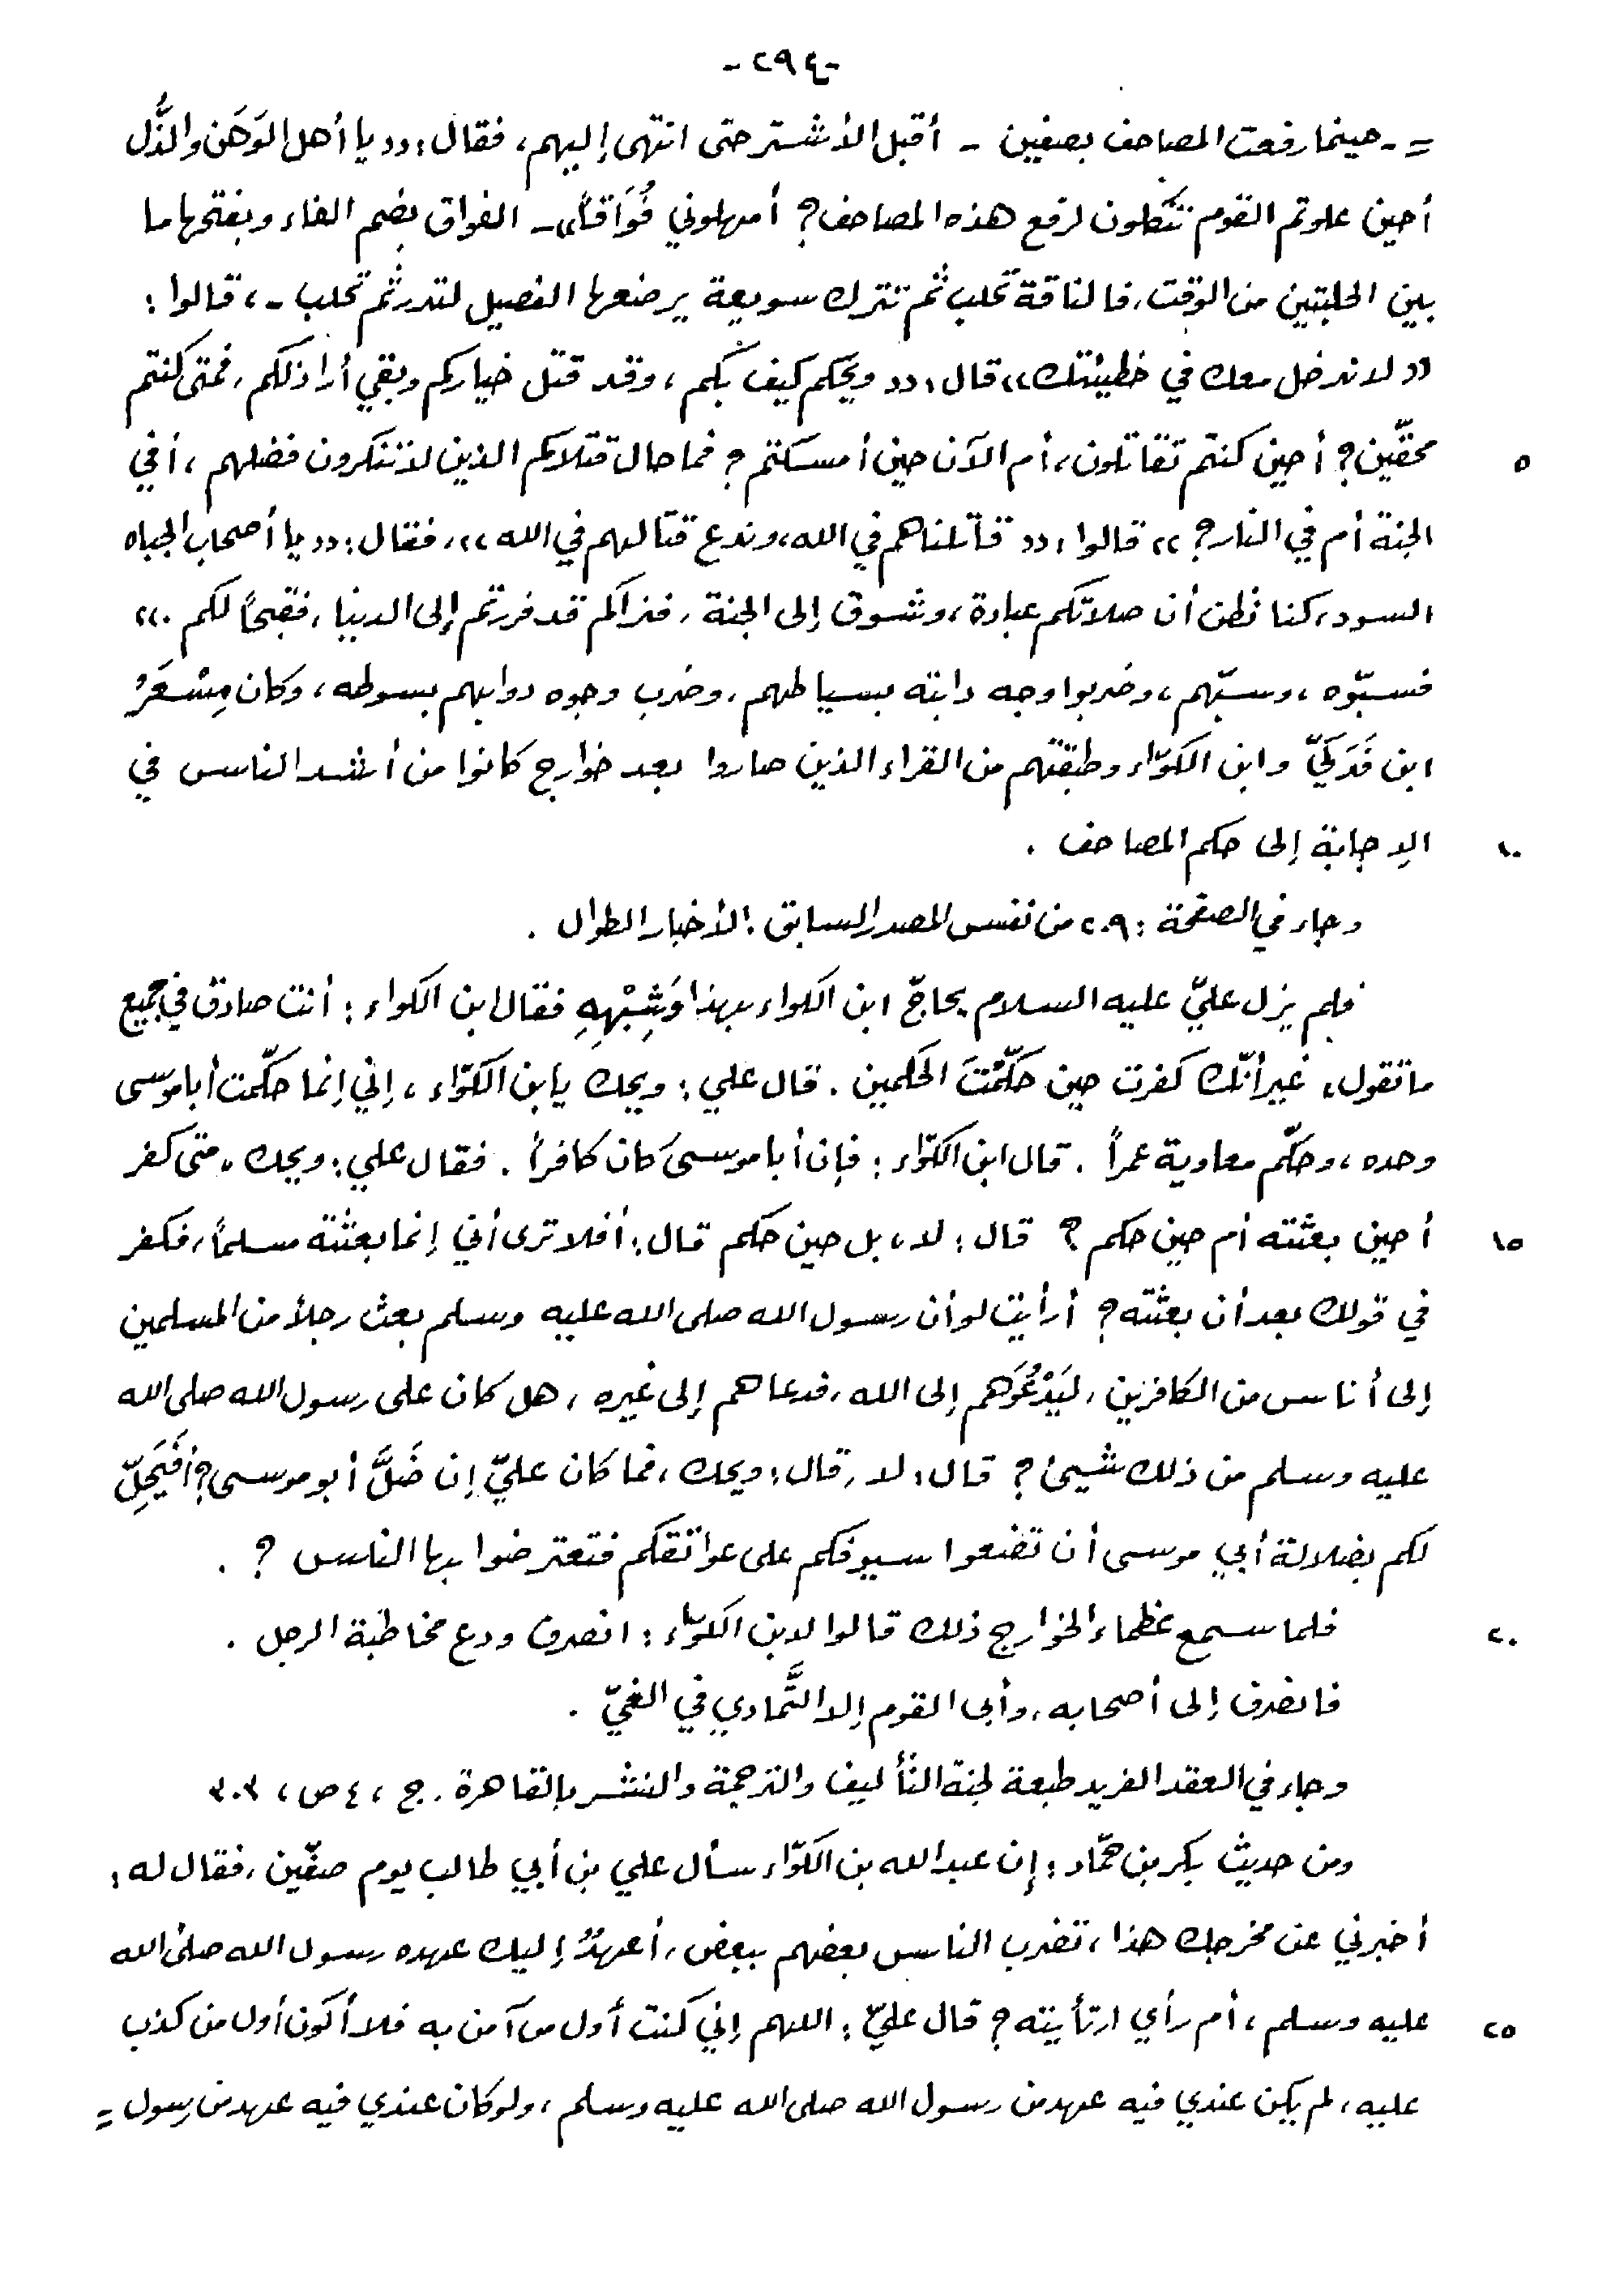 -٢٩٤-
= - حينما رفعت المصاحف بصفين - أقبل الأشتر حتى انتهى إليهم، فقال: «يا أهل الوَهَن والذُّل
أحين علوتم القوم تنكلون لرفع هذه المصاحف؟ أمهلوني فُوَاقاً» - الفواق بضم الفاء وبفتحها ما
بين الحلبتين من الوقت، فالناقة تحلب ثم تترك سويعة يرضعها الفصيل لتدر ثم تحلب -، قالوا:
«لا ندخل معك في خطيئتك» قال: «ويحكم كيف بكم، وقد قتل خياركم وبقي أراذلكم، فمتى كنتم
٥ محقّين؟ أحين كنتم تقاتلون، أم الآن حين أمسكتم؟ فما حال قتلاكم الذين لا تنكرون فضلهم، أفي
الجنة أم في النار؟» قالوا: «قاتلناهم في الله، وندع قتالهم في الله»، فقال: «يا أصحاب الجباه
السود، كنا نظن أن صلاتكم عبادة، وشوق إلى الجنة، فنراكم قد فررتم إلى الدنيا، فقبحاً لكم.»
فسبّوه، وسبّهم، وضربوا وجه دابته بسياطهم، وضرب وجوه دوابهم بسوطه، وكان مِسْعَرُ
ابن فَدَكَيّ وابن الكوّاء وطبقتهم من القراء الذين صاروا بعد خوارج كانوا من أشد الناس في
١٠ الإجابة إلى حكم المصاحف.
وجاء في الصفحة: ٢٠٩ من نفس المصدر السابق: الأخبار الطوال.
فلم يزل عليّ عليه السلام يحاجّ ابن الكواء بهذا وَشِبْهِهِ فقال ابن الكواء: أنت صادق في جميع
ما تقول، غير أنّك كفرت حين حكّمْتَ الحكمين. قال علي: ويحك يابن الكوّاء، إني إنما حكّمت أبا موسى
وحده، وحكّم معاوية عمراً. قال ابن الكوّاء: فإن أبا موسى كان كافراً. فقال علي: ويحك، متى كفر
١٥ أحين بعثته أم حين حكم؟ قال: لا، بل حين حكم قال: أفلا ترى أني إنما بعثته مسلماً، فكفر
في قولك بعد أن بعثته؟ أرأيت لو أن رسول الله صلى الله عليه وسلم بعث رجلاً من المسلمين
إلى أناس من الكافرين، ليَدْعُوَهم إلى الله، فدعاهم إلى غيره، هل كان على رسول الله صلى الله
عليه وسلم من ذلك شيئ؟ قال: لا، قال: ويحك، فما كان عليّ إن ضَلَّ أبو موسى؟ أفَيَحِلّ
لكم بضلالة أبي موسى أن تضعوا سيوفكم على عواتقكم فتعترضوا بها الناس؟.
٢٠ فلما سمع عظماء الخوارج ذلك قالوا لابن الكوّاء: انصرف ودع مخاطبة الرجل.
فانصرف إلى أصحابه، وأبى القوم إلا التَّمادي في الغيّ.
وجاء في العقد الفريد طبعة لجنة التأليف والترجمة والنشر بالقاهرة. ج، ٤ ص، ٣٠٣
ومن حديث بكر بن حمّاد: إن عبد الله بن الكوّاء سأل علي بن أبي طالب يوم صفّين، فقال له:
أخبرني عن مخرجك هذا، تضرب الناس بعضهم ببعض، أعهدٌ إليك عهده رسول الله صلى الله
٢٥ عليه وسلم، أم رأي ارتأيته؟ قال عليّ: اللهم إني كنت أول من آمن به فلا أكون أول من كذب
عليه، لم يكن عندي فيه عهد من رسول الله صلى الله عليه وسلم، ولو كان عندي فيه عهد من رسول =